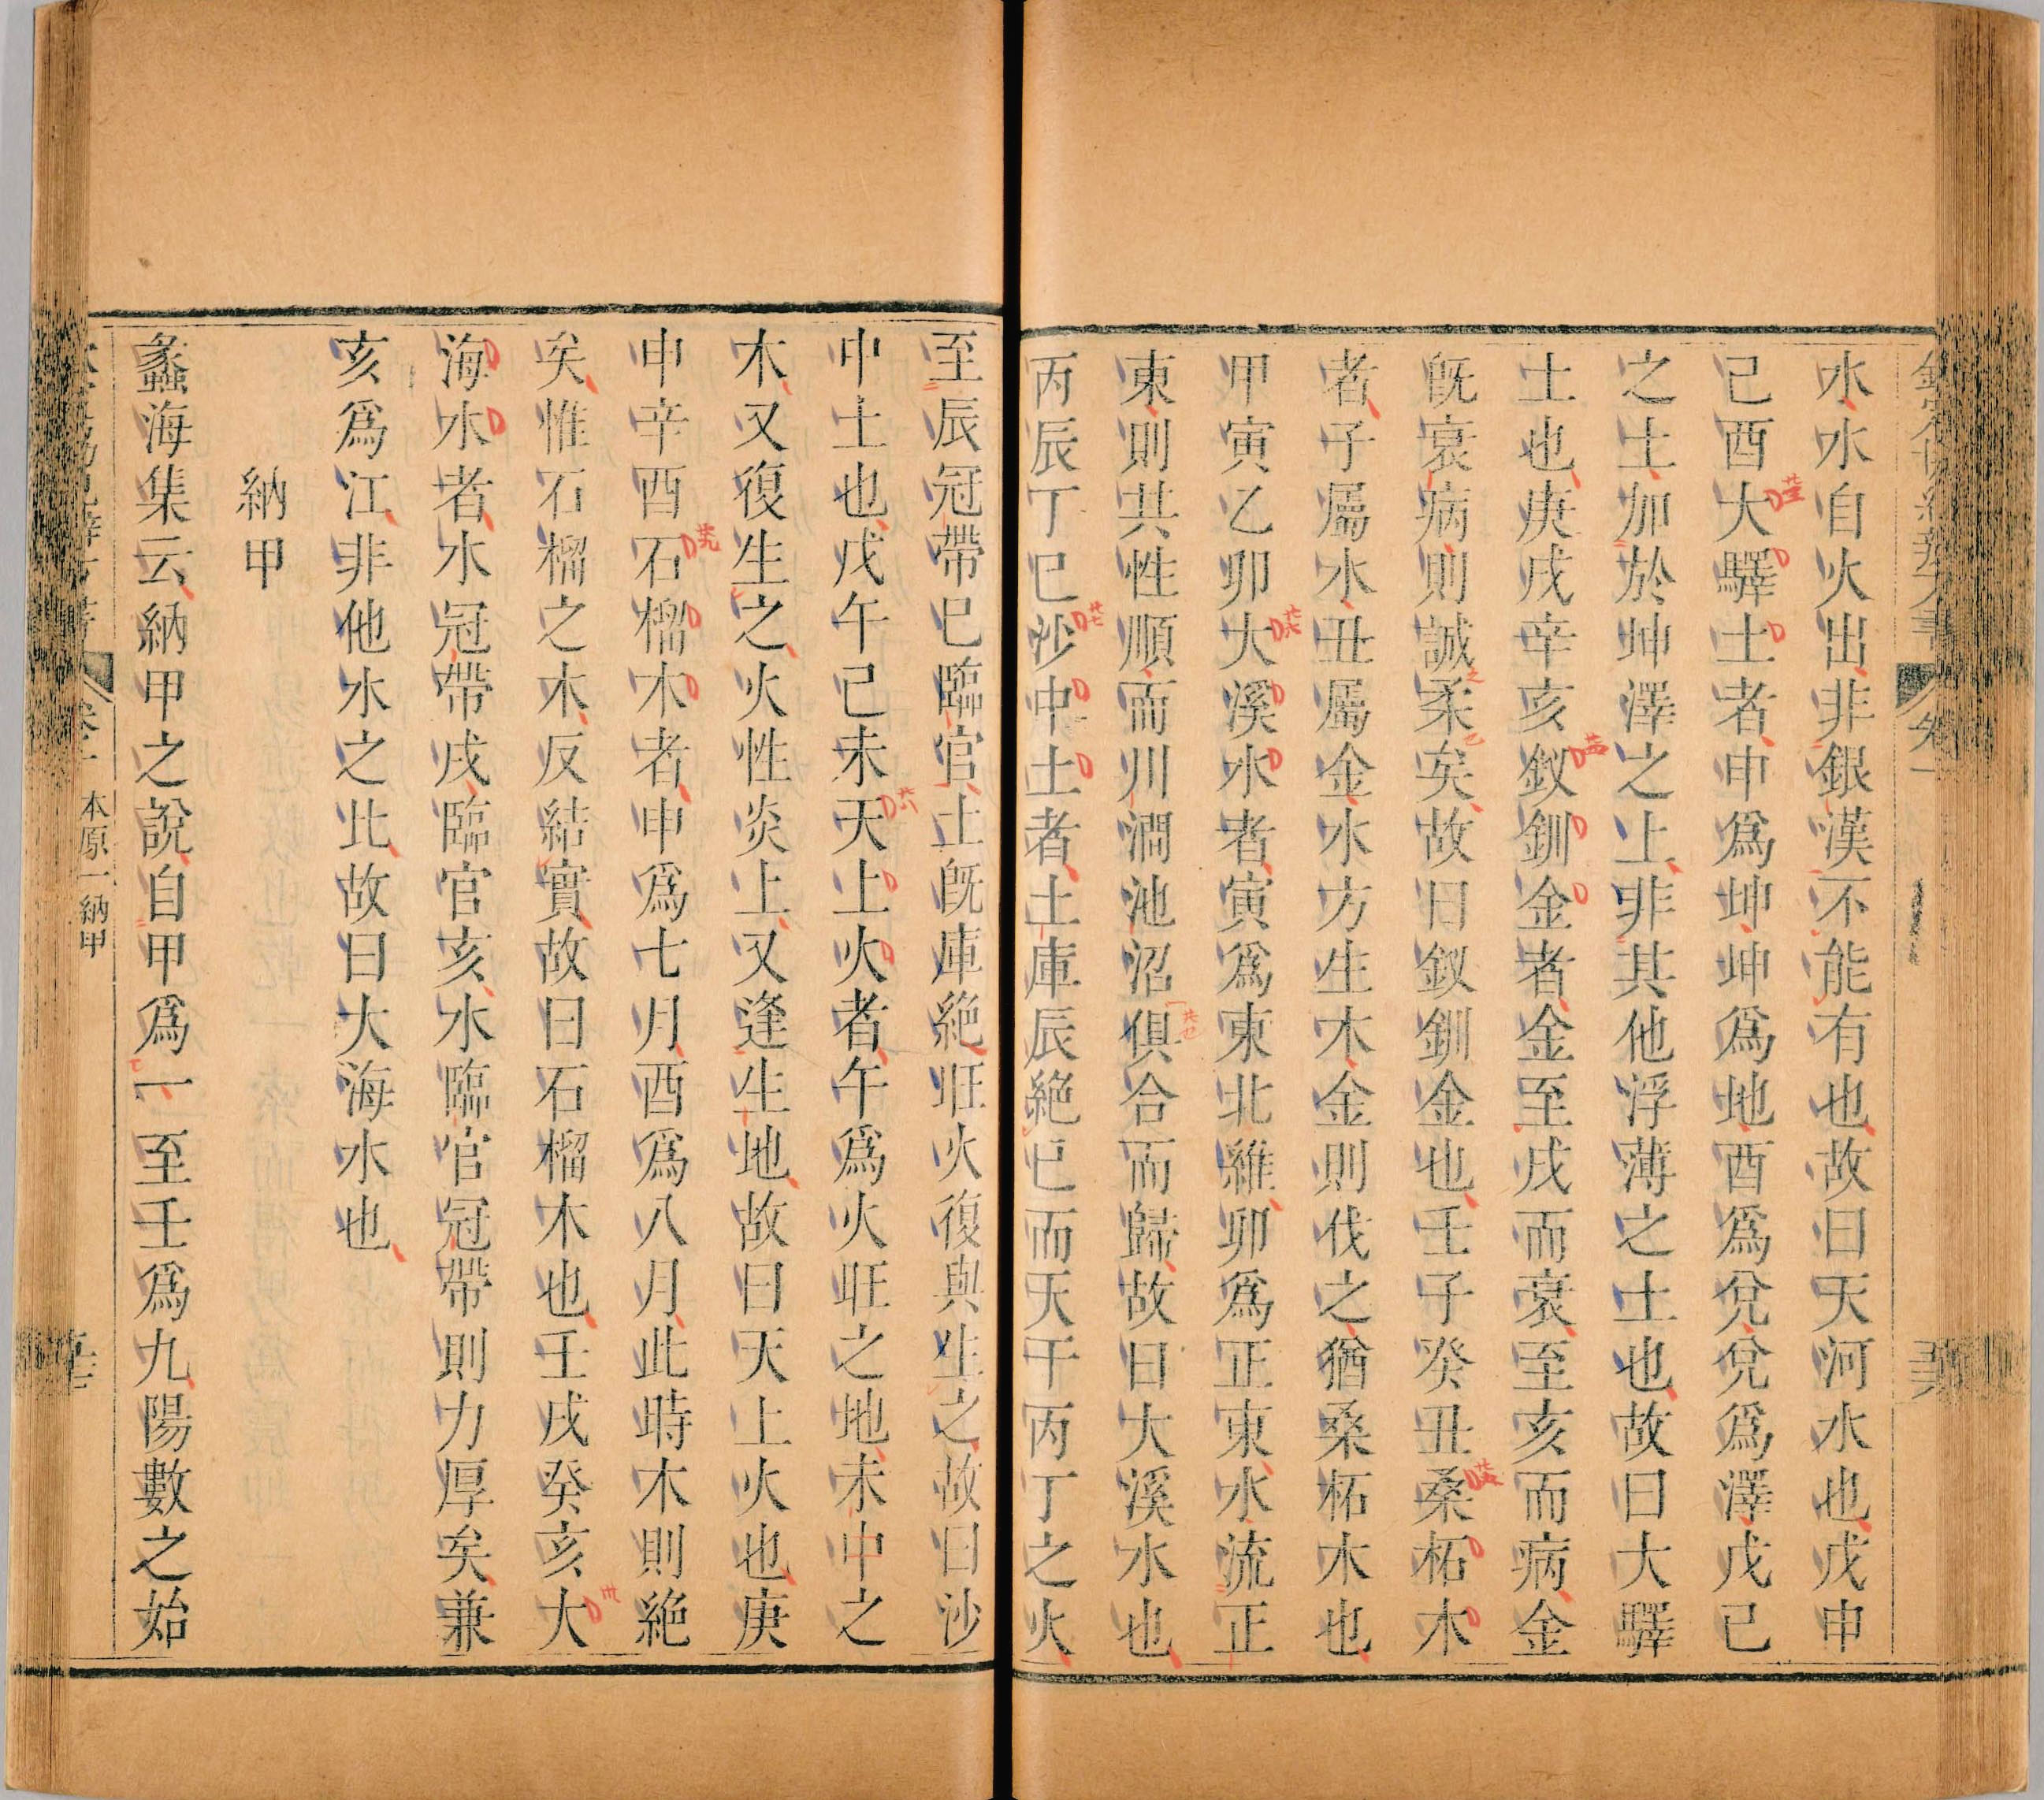 水水自火出非銀漢不能有也故曰天河水也戊申
己酉大驛土者申爲坤坤爲地酉爲兌兌爲澤戊己
之土加於坤澤之上非其他浮薄之土也故曰大驛
土也庚戌辛亥釵釧金者金至戌而衰至亥而病金
旣衰病則誠柔矣故曰釵釧金也壬子癸丑桑柘木
者子屬水丑屬金水方生木金則伐之猶桑柘木也
甲寅乙卯大溪水者寅爲東北維卯爲正東水流正
東則其性順而川澗池沼俱合而歸故曰大溪水也
丙辰丁巳沙中土者土庫辰絕巳而天干丙丁之火
至辰冠帶巳臨官土旣庫絕旺火復與生之故曰沙
中土也戊午己未天上火者午爲火旺之地未中之
木又復生之火性炎上又逢生地故曰天上火也庚
申辛酉石榴木者申爲七月酉爲八月此時木則絕
矣惟石榴之木反結實故曰石榴木也壬戌癸亥大
海水者水冠帶戌臨官亥水臨官冠帶則力厚矣兼
亥爲江非他水之比故曰大海水也
納甲
蠡海集云納甲之說自甲爲一至壬爲九陽數之始
卷一 本原一納甲